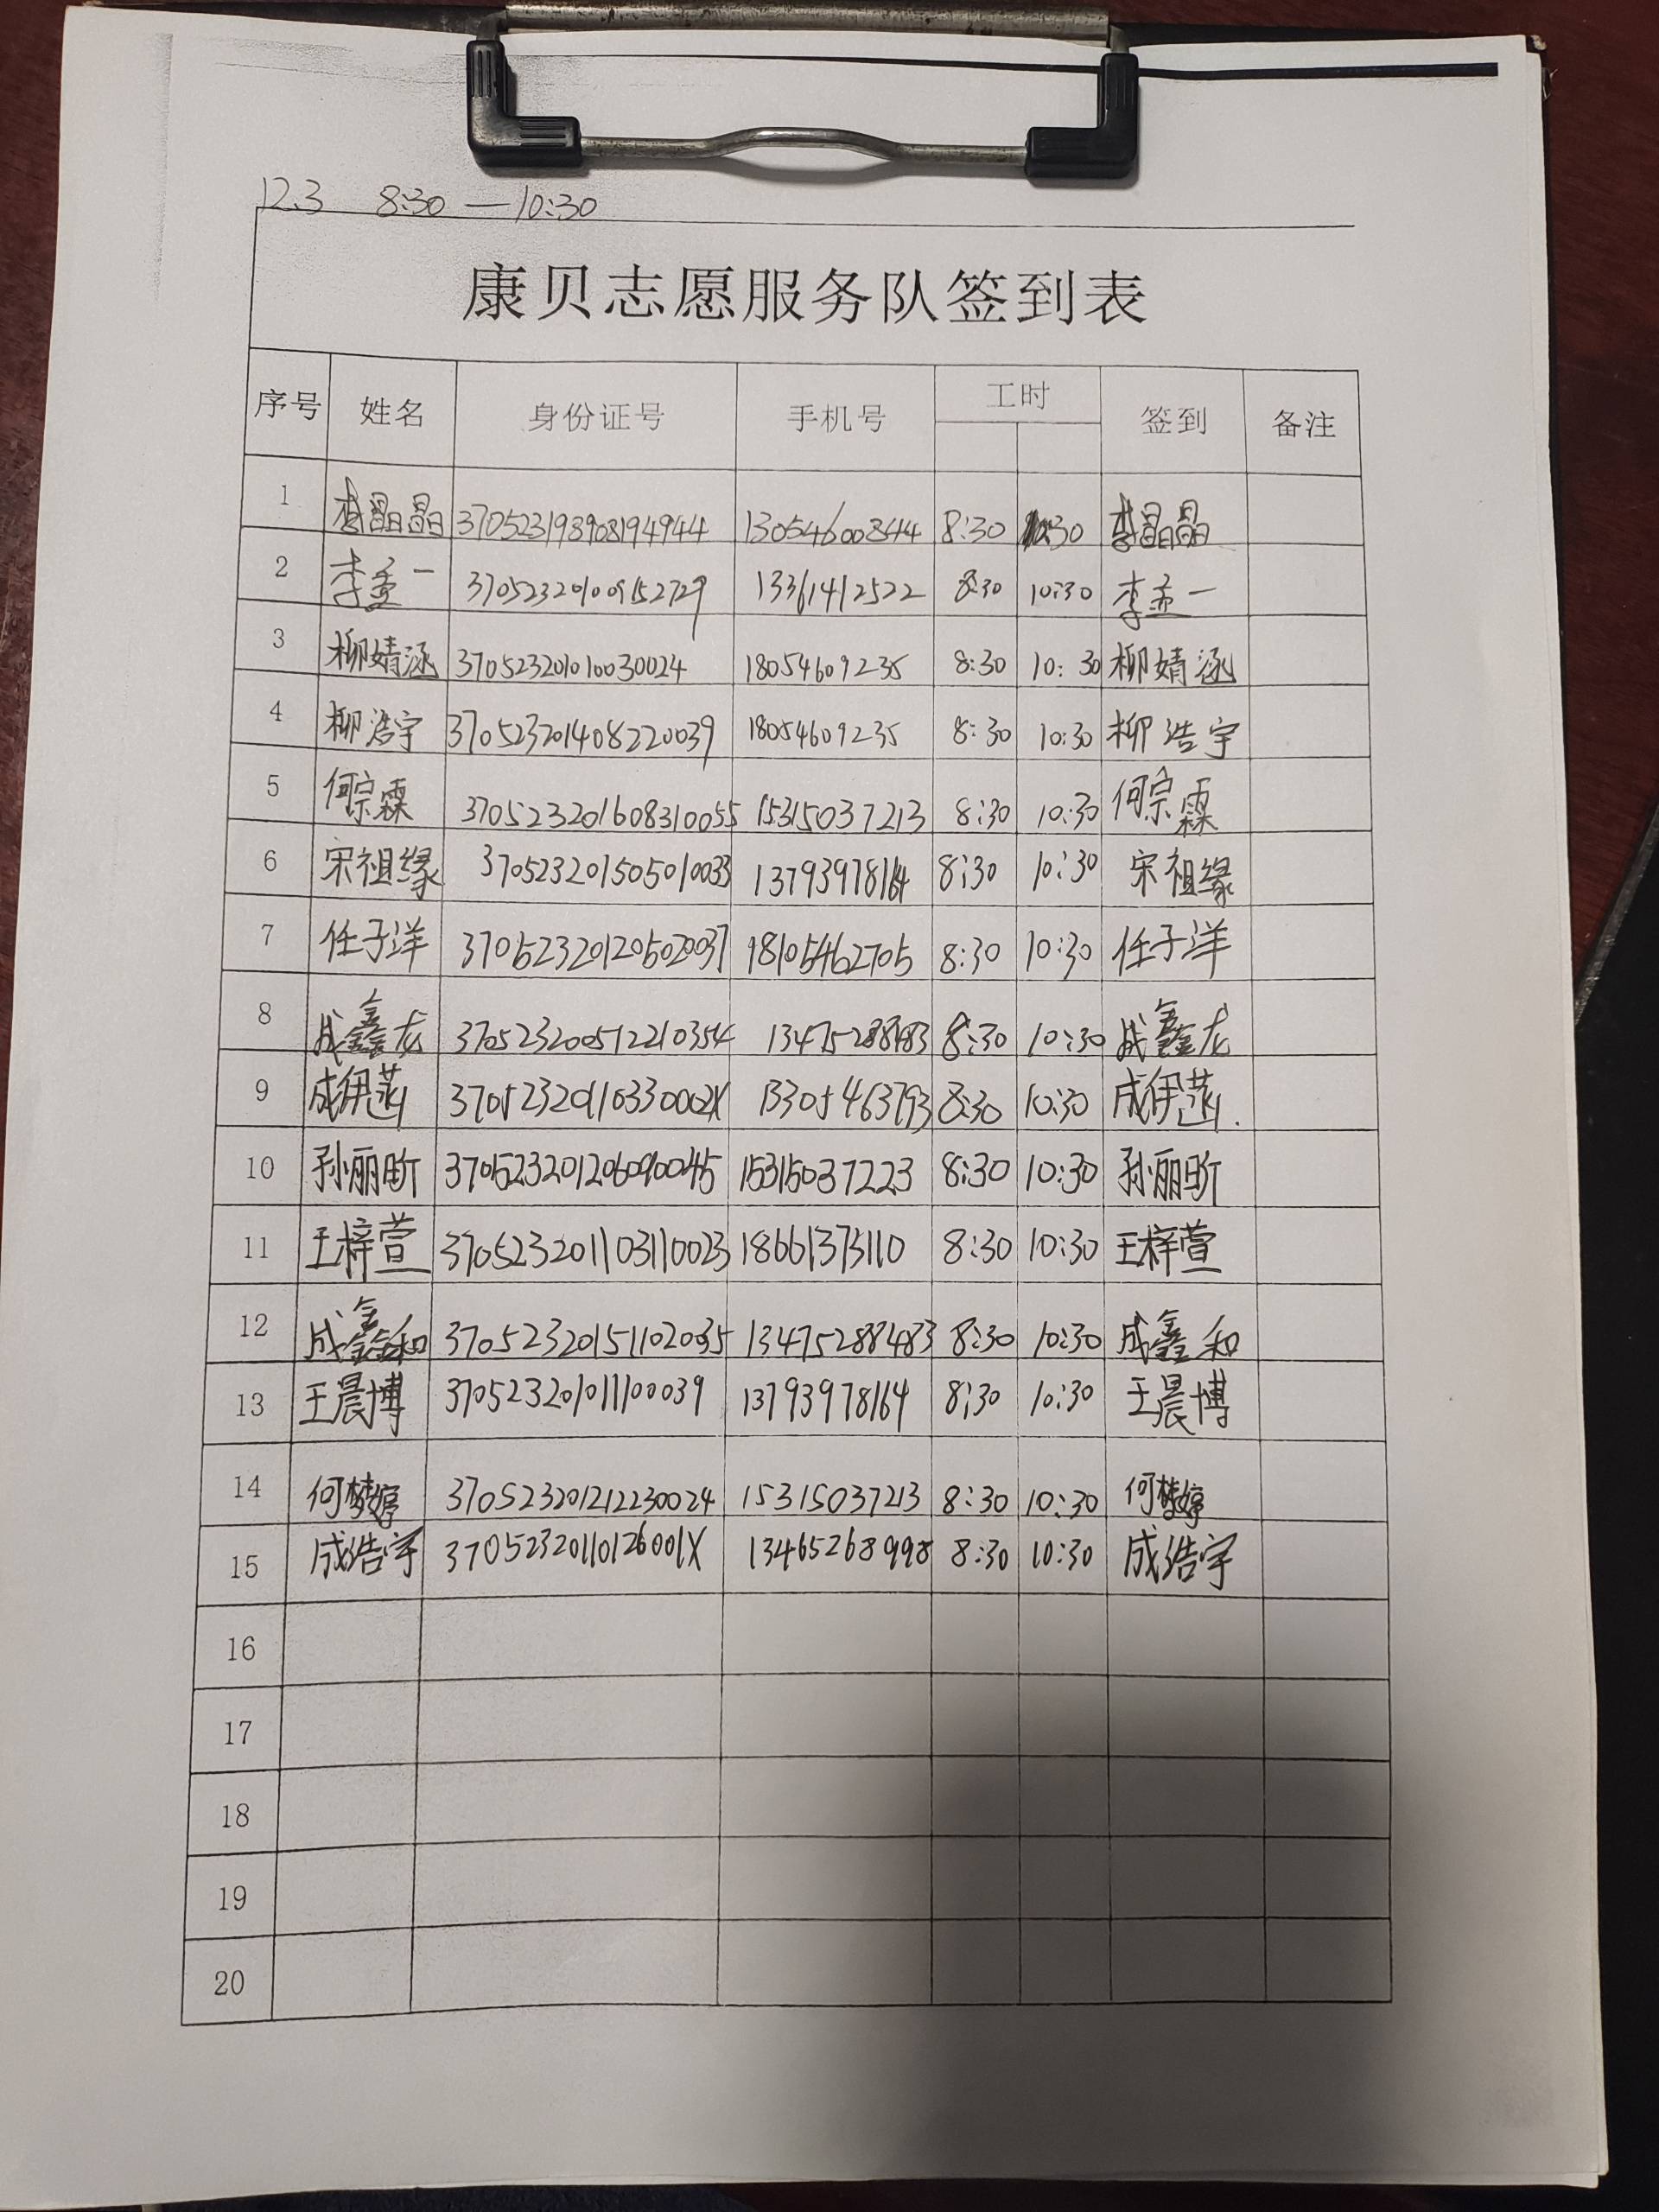 12.3 8:30 — 10:30
康贝志愿服务队签到表
序号 姓名 身份证号 手机号 工时 签到 备注
1 李晶晶 370523198908194944 13054600844 8:30 10:30 李晶晶
2 李孟一 370523201009152729 13361412522 8:30 10:30 李孟一
3 柳婧涵 370523201010030024 18054609235 8:30 10:30 柳婧涵
4 柳浩宇 370523201408220039 18054609235 8:30 10:30 柳浩宇
5 何宗霖 370523201608310055 15315037213 8:30 10:30 何宗霖
6 宋祖缘 370523201505010033 13793978164 8:30 10:30 宋祖缘
7 任子洋 370523201205020037 18105462705 8:30 10:30 任子洋
8 成鑫龙 370523200512210354 13475288483 8:30 10:30 成鑫龙
9 37052320110330002X 13305463793 8:30 10:30
10 孙丽昕 370523201206090045 15315037223 8:30 10:30 孙丽昕
11 王梓萱 370523201103110023 18661373110 8:30 10:30 王梓萱
12 成鑫和 370523201511020035 13475288483 8:30 10:30 成鑫和
13 王晨博 370523201011100039 13793978164 8:30 10:30 王晨博
14 何梦婷 370523201212230024 15315037213 8:30 10:30 何梦婷
15 成浩宇 37052320110126001X 13465268998 8:30 10:30 成浩宇
16
17
18
19
20